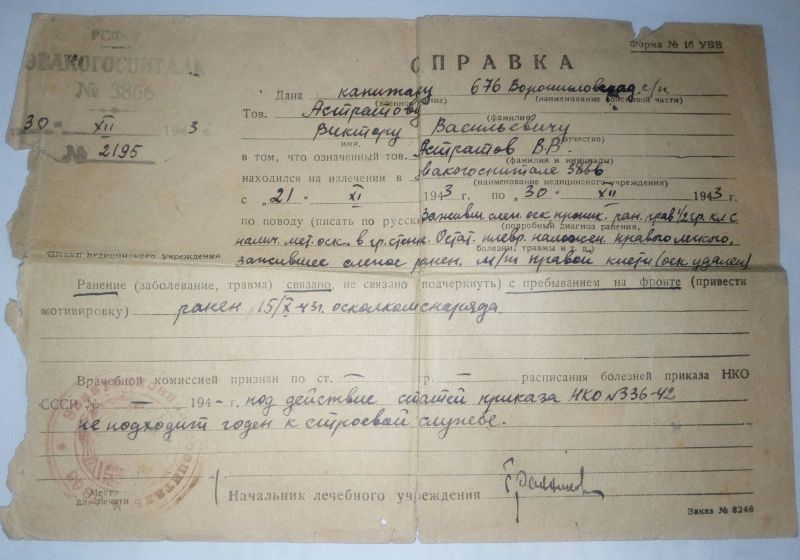 РСФСР
ЭВАКОГОСПИТАЛЬ
№ 3866
30 - XII 1943
№ 2195
Штамп медицинского учреждения
Форма № 16 УВВ
СПРАВКА
Дана капитану 676 Ворошиловград. с/п
(военное звание) (наименование войсковой части)
Тов. Астратову
(фамилия)
Виктору Васильевичу
имя, отчество)
в том, что означенный тов. Астратов В.В.
(фамилия и инициалы)
находился на излечении в эвакогоспитале 3866
(наименование медицинского учреждения)
с „21 - XI 1943 г. по „30 - XII 1943 г.
по поводу (писать по русски) заживш. слеп. оск. проник. ран. прав 1/2 гр. кл с
(подробный диагноз ранения,
налич. мет. оск. в гр. стенке. Остат. плевр. наложен. правого легкого.
болезни, травмы и т. д.)
зажившее слепое ранен. м/т правой кисти (оск удален).
Ранение (заболевание, травма) связано, не связано (подчеркнуть) с пребыванием на фронте (привести
мотивировку) ранен 15/X-43г. осколком снаряда
Врачебной комиссией признан по ст. — гр. — расписания болезней приказа НКО
СССР № — 194 - г. под действие статей приказа НКО №336-42
не подходит годен к строевой службе.
Место
для печати
Начальник лечебного учреждения
Заказ № 8248